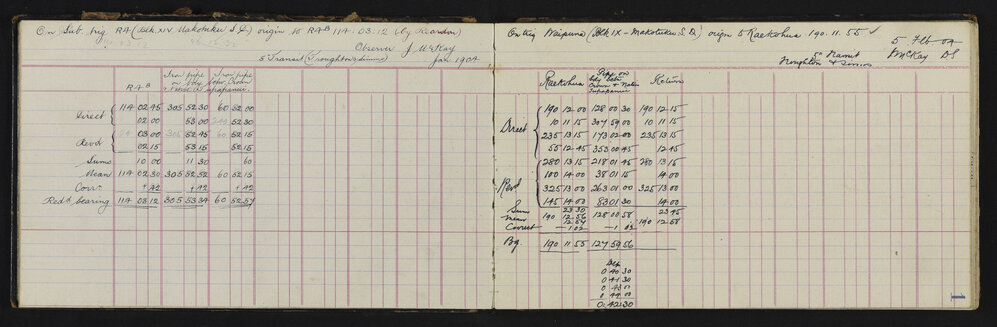 On Sub. trig RA (Blk XIV Makotuku S.D.) origin to RA B 114.03.12 (by Reardon)
Observer J McKay
5" Transit (Troughton & Simms) Jan 1904
Iron pipe Iron pipe
bdy betw Crown
RA B
Direct 114 02 45 305 52 30 60 52 00
02 00 53 00 240 52 30
Revd 03 00 305 52 45 60 52 15
02 15 53 15 52 15
Sums 10 00 11 30 60
Mean 114 02 30 305 52 52 60 52 15
Corrn + 42 + 42 + 42
Redd bearing 114 03 12 305 53 34 60 52 57
On trig Waipuna (Blk IX - Makotuku S.D.) origin to Raekohua 190.11.55 ✓
5 Feb 04
5" Transit McKay DS
Troughton & Simms
Raekohua Pipe on bdy betw Crown & Native Return
Direct 190 12 00 128 00 30 190 12 15
10 11 15 307 59 00 10 11 15
235 13 15 173 02 00 235 13 15
55 12 45 353 00 45 12 45
Revd 280 13 15 218 01 45 280 13 15
100 14 00 38 01 15 14 00
325 13 00 263 01 00 325 13 00
145 14 00 83 01 30 14 00
Sum 23 30 23 45
Mean 190 12 56 128 00 58 190 12 58
12 57
Correct - 1 02 - 1 02
Bg. 190 11 55 127 59 56
0 40 30
0 41 30
0 43 00
0 44 00
0 42 30